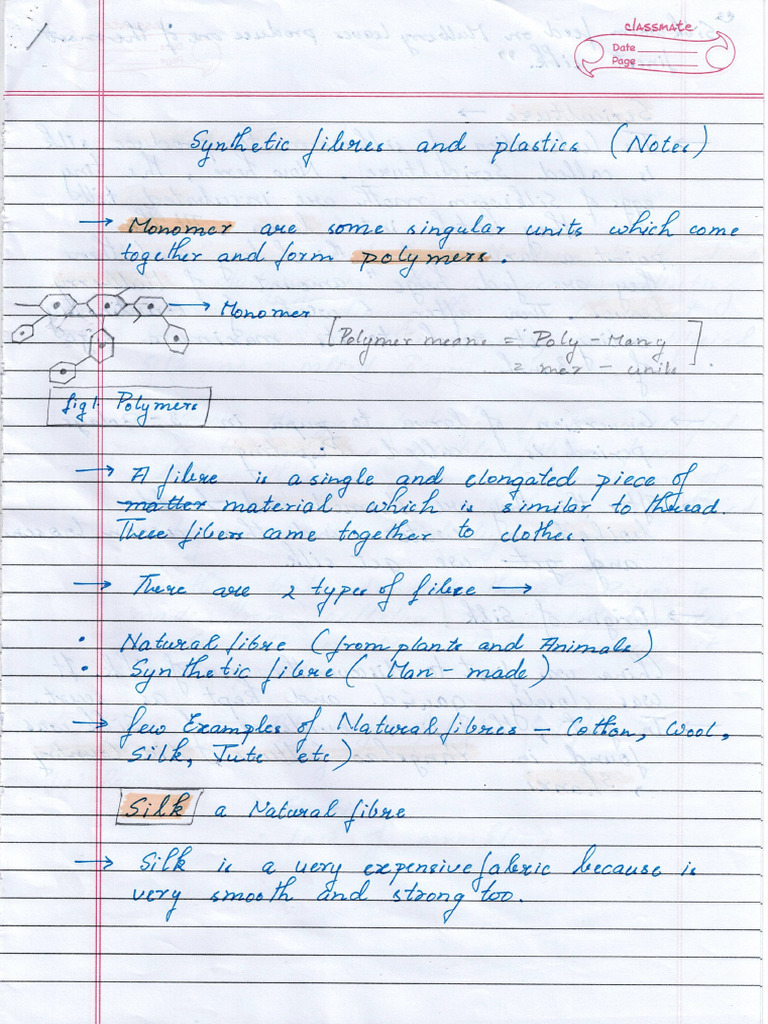 classmate
Date
Page
Synthetic fibres and plastics (Notes)
→ Monomer are some singular units which come
together and form polymers.
→ Monomer
[Polymer means = Poly - Many
= mer - units].
fig1. Polymers
→ A fibre is a single and elongated piece of
matter material which is similar to thread.
These fibers came together to clothes.
→ There are 2 types of fibre →
• Natural fibre (from plants and Animals)
• Synthetic fibre (Man-made)
→ few Examples of Natural fibres - Cotton, Wool,
Silk, Jute etc)
Silk a Natural fibre
→ Silk is a very expensive fabric because is
very smooth and strong too.